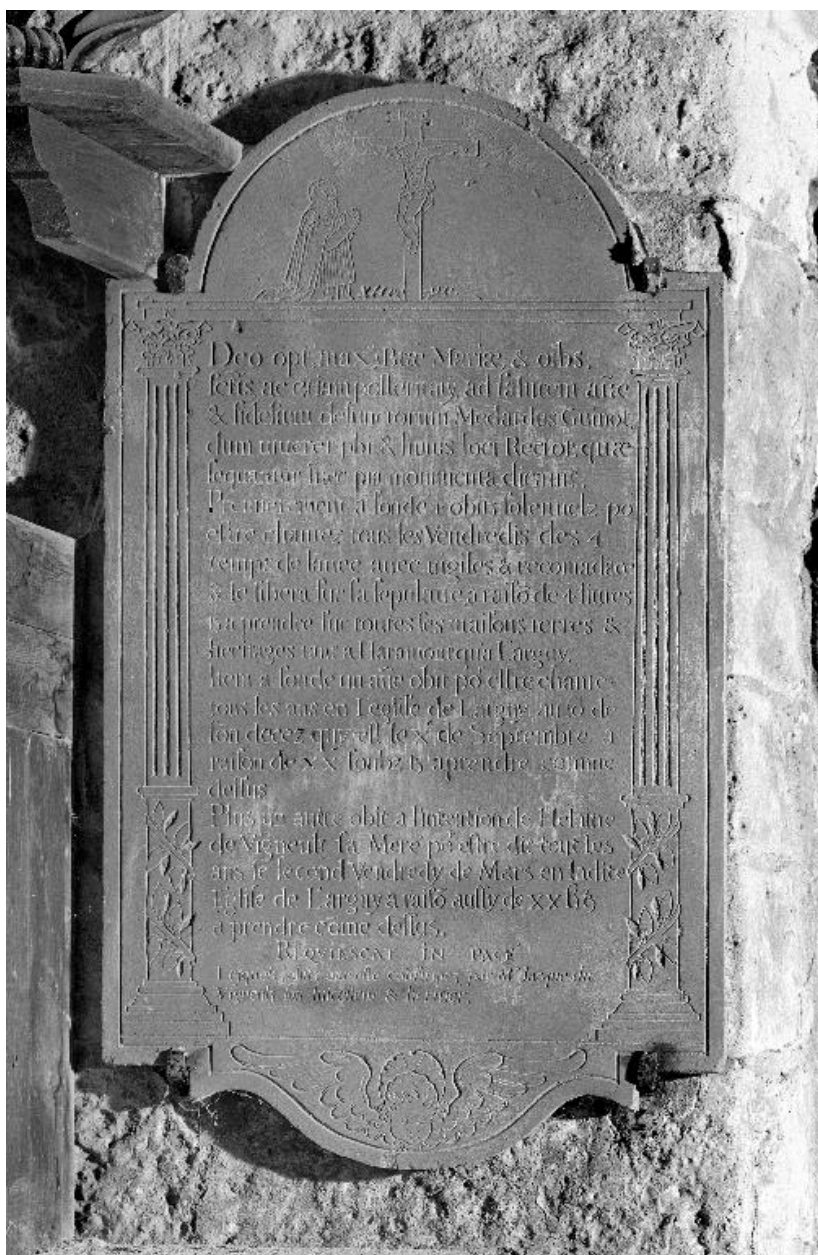 Deo opt. max. Btæ Mariæ, & oibs,
sctis ac etiam posteritati, ad salutem aïæ
& fidelium defunctorum Medardus Guinot,
dum viveret pbr & huius loci Rector, quæ
sequuntur hæc pia monumenta dicavit.
Premierement a fondé 4 obits solennelz po
estre chantez tous les Vendredis des 4
temps de lannee avec vigiles & recomādaçe
& le libera sur sa sepulture, a raisō de 4 livres
a prendre sur toutes ses maisons terres &
heritages
Item a fonde un aûe obit pō estre chante
tous les ans en Leglise de Largny, au iō de
son decez qui est le xe de Septembre a
raison de xx soubz a prendre comme
dessus
Plus un autre obit a lintention de
de Vigneulx sa Mere pō estre dit tout les
ans le second Vendredy de Mars en ladite
Eglise de Largny a raisō aussy de xx
a prendre cōme dessus.
REQVIESCAT IN PACE
par Mr Jacques
& heritier